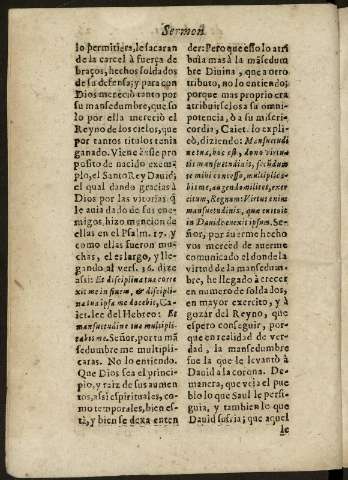 Sermon
lo permitiera, le sacaran
de la carcel à fuerça de
braços, hechos soldados
de su defensa; y para con
Dios mereciò tanto por
su mansedumbre, que so
lo por ella mereciò el
Reyno de los cielos, que
por tantos titulos tenia
ganado. Viene à este pro
posito de nacido exem-
plo, el Santo Rey Dauid,
el qual dando gracias à
Dios por las vitorias q̃
le auia dado de sus ene-
migos, hizo mencion de
ellas en el Psalm. 17. y
como ellas fueron mu-
chas, el es largo, y lle-
gando al vers. 36. dize
assi: Et disciplina tua corre
xit me in finem, & discipli-
na tua ipsa me docebit, Ca-
iet. lee del Hebreo: Et
mansuetudine tua multipli-
cabis me. Señor, por tu mã
sedumbre me multipli-
caras. No lo entiendo.
Que Dios sea el princi-
pio, y raiz de sus aumen
tos, assi espirituales, co-
mo temporales, bien es-
tà, y bien se dexa enten
der: Pero que esso lo atri
buia mas à la mãsedum-
bre Diuina, que a otro
tributo, no lo entiendo;
porque mas proprio era
atribuirselos a su omni-
potencia, ò a su miseri-
cordia, Caiet. lo expli-
cò, diziendo: Mansuetudi
ne tua, hoc est, dono virtu-
tis mansuetudinis, secũdum
te mihi concesso, multiplica-
bis me, augendo milites, exer
citum, Regnum: Virtus enim
mansuetudinis, que emicuit
in Dauide euexit ipsum. Se-
ñor, por auerme hecho
vos merced de auerme
comunicado el don de la
virtud de la mansedum-
bre, he llegado à crecer
en numero de soldados,
en mayor exercito, y à
gozar del Reyno, que
espero conseguir, por-
que en realidad de ver-
dad, la mansedumbre
fue la que leuantò à
Dauid a la corona. De-
manera, que veja el pue
blo lo que Saul le persi-
guia, y tambien lo que
Dauid sufria; que aquel
le